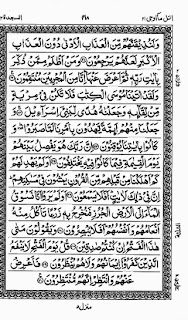 اتل مآ اوحی ۲۱
السجدة ۳۲
وَلَنُذِيْقَنَّهُمْ مِّنَ الْعَذَابِ الْاَدْنٰى دُوْنَ الْعَذَابِ
الْاَكْبَرِ لَعَلَّهُمْ يَرْجِعُوْنَ وَمَنْ اَظْلَمُ مِمَّنْ ذُكِّرَ
بِاٰيٰتِ رَبِّهٖ ثُمَّ اَعْرَضَ عَنْهَا اِنَّا مِنَ الْمُجْرِمِيْنَ مُنْتَقِمُوْنَ
وَلَقَدْ اٰتَيْنَا مُوْسَى الْكِتٰبَ فَلَا تَكُنْ فِيْ مِرْيَةٍ
مِّنْ لِّقَآئِهٖ وَجَعَلْنٰهُ هُدًى لِّبَنِيْٓ اِسْرَآءِيْلَ
وَجَعَلْنَا مِنْهُمْ اَئِمَّةً يَّهْدُوْنَ بِاَمْرِنَا لَمَّا صَبَرُوْا وَ
كَانُوْا بِاٰيٰتِنَا يُوْقِنُوْنَ اِنَّ رَبَّكَ هُوَ يَفْصِلُ بَيْنَهُمْ
يَوْمَ الْقِيٰمَةِ فِيْمَا كَانُوْا فِيْهِ يَخْتَلِفُوْنَ اَوَلَمْ يَهْدِ لَهُمْ
كَمْ اَهْلَكْنَا مِنْ قَبْلِهِمْ مِّنَ الْقُرُوْنِ يَمْشُوْنَ فِيْ مَسٰكِنِهِمْ
اِنَّ فِيْ ذٰلِكَ لَاٰيٰتٍ اَفَلَا يَسْمَعُوْنَ اَوَلَمْ يَرَوْا اَنَّا نَسُوْقُ
الْمَآءَ اِلَى الْاَرْضِ الْجُرُزِ فَنُخْرِجُ بِهٖ زَرْعًا تَاْكُلُ مِنْهُ
اَنْعَامُهُمْ وَاَنْفُسُهُمْ اَفَلَا يُبْصِرُوْنَ وَيَقُوْلُوْنَ مَتٰى
هٰذَا الْفَتْحُ اِنْ كُنْتُمْ صٰدِقِيْنَ قُلْ يَوْمَ الْفَتْحِ لَا يَنْفَعُ
الَّذِيْنَ كَفَرُوْٓا اِيْمَانُهُمْ وَلَا هُمْ يُنْظَرُوْنَ فَاَعْرِضْ
عَنْهُمْ وَانْتَظِرْ اِنَّهُمْ مُّنْتَظِرُوْنَ